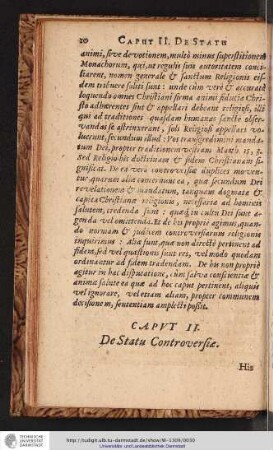 20 CAPUT II. DE STATU
animi, sive devotionem, multò minus superstitionem
Monachorum, qui, ut regulis suis autoritatem conci-
liarent, nomen generale & sanctum Religionis eis-
dem tribuere soliti sunt: unde cùm verè & accuratè
loquendo omnes Christiani firma animi fiducia Chri-
sto adhærentes sint & appellari debeant religiosi, illi
ad traditiones quasdam humanas sanctè obser-
vandas se astrinxerunt, soli Religiosi appellari vo-
luerunt, secundum illud: Vos transgredimini manda-
tum Dei, propter traditionem vestram Matth. 15, 3.
Sed Religio hic doctrinam & fidem Christianam si-
gnificat. De ea verò controversiæ duplices moven-
tur, quarum aliæ sunt que secundum Dei
revelationem & mandatum, tanquam dogmata &
capita Christianæ religionis, necessaria ad hominis
salutem, credenda sunt: quæq; in cultu Dei sunt agen-
da vel omittenda. Et de his propriè agimus, quan-
do normam & judicem controversiarum religionis
inquirimus: Aliæ sunt, quæ non directè pertinent ad
fidem, sed vel quæstiones sunt rei, vel modo quodam
ordinantur ad fidem tradendam. De his non propriè
agitur in hac disputatione, cùm salva conscientia &
animæ salute ea quæ ad hoc caput pertinent, aliquis
vel ignorare, vel etiam aliam, præter communem
decisionem, sententiam amplecti possit.
CAPUT II.
De Statu Controversiæ.
His
http://tudigit.ulb.tu-darmstadt.de/show/W-1309/0030
Universitäts- und Landesbibliothek Darmstadt